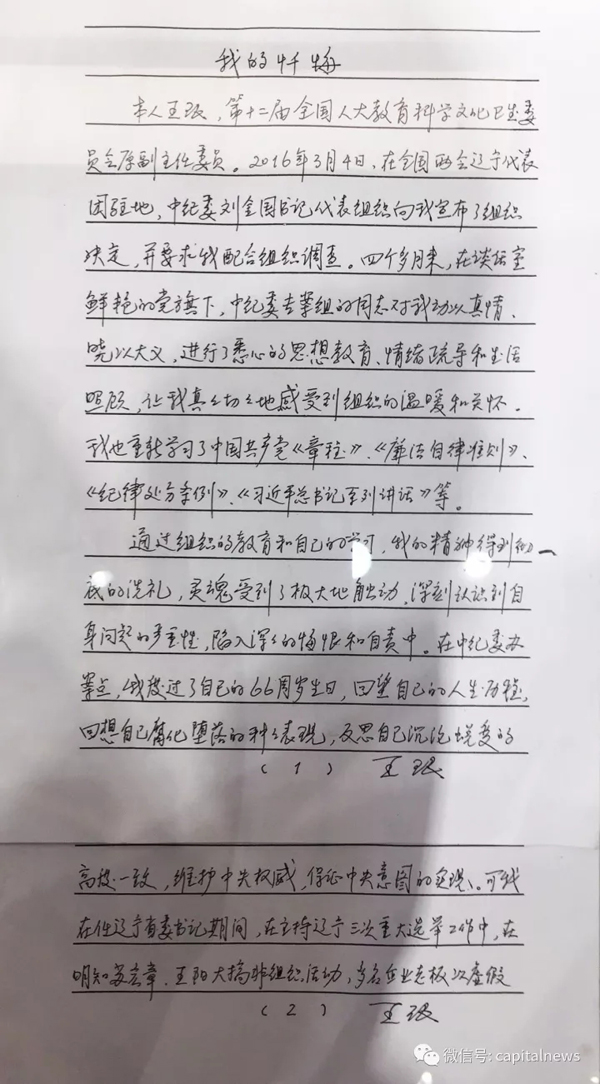 我的忏悔
本人王珉，第十二届全国人大教育科学文化卫生委
员会原副主任委员。2016年3月4日，在全国两会辽宁代表
团驻地，中纪委刘金国书记代表组织向我宣布了组织
决定，并要求我配合组织调查。四个多月来，在谈话室
鲜艳的党旗下，中纪委专案组的同志对我动以真情、
晓以大义，进行了悉心的思想教育、情绪疏导和生活
照顾，让我真真切切地感受到组织的温暖和关怀。
我也重新学习了中国共产党《章程》、《廉洁自律准则》、
《纪律处分条例》、《习近平总书记系列讲话》等。
通过组织的教育和自己的学习，我的精神得到彻
底的洗礼，灵魂受到了极大地触动，深刻认识到自
身问题的严重性，陷入深深的悔恨和自责中。在中纪委办
案点，我度过了自己的66周岁生日，回望自己的人生历程，
回想自己腐化堕落的种种表现，反思自己沉沦蜕变的
（1） 王珉
高度一致，维护中央权威，保证中央意图的实现。可我
在任辽宁省委书记期间，在主持辽宁三次重大选举工作中，在
明知苏宏章、王阳大搞非组织活动，多名企业老板以虚假
（2） 王珉
微信号: capitalnews